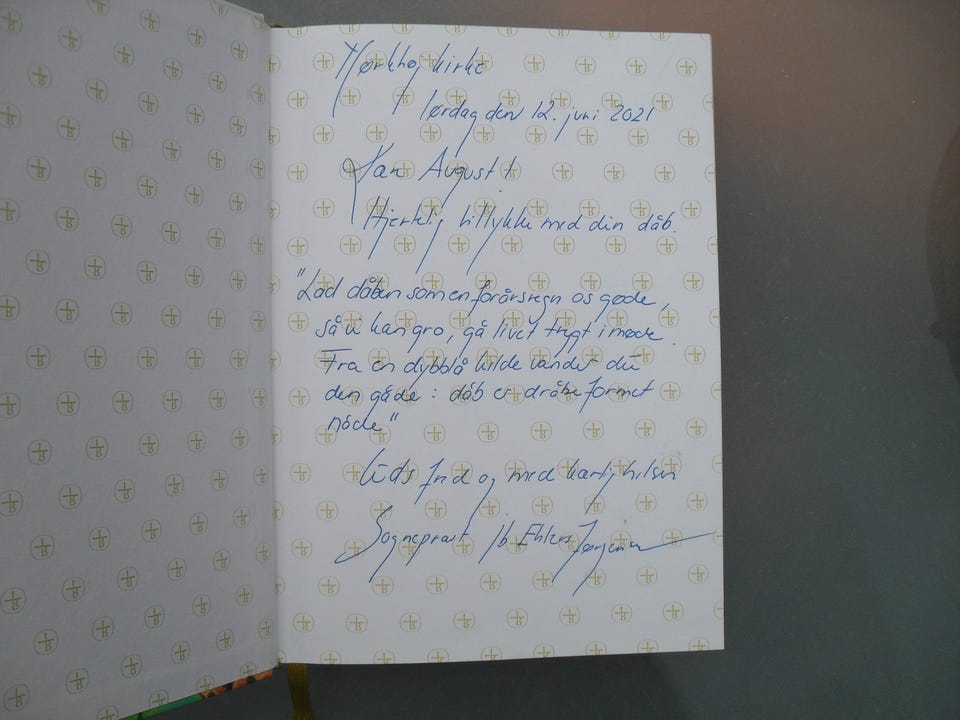 Mørkhøj kirke
lørdag den 12. juni 2021
Jan August!
Hjertelig tillykke med din dåb.
"Lad dåben som en forårsregn os gøde,
så vi kan gro, gå livet trygt i møde.
Fra en dybblå kilde vander du
den gåde: dåb er dråbeformet
nåde"
Guds fred og med kærlig hilsen
Sognepræst Ib Ehlers Jørgensen